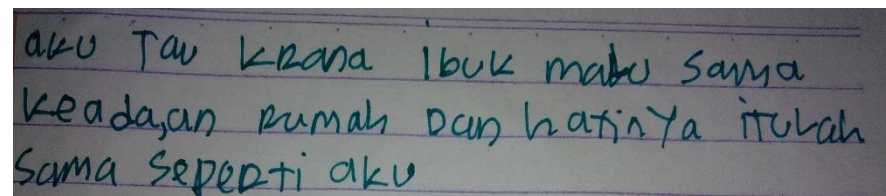 aku Tau kRana ibuk malu sama
keada,an Rumah Dan hatinYa iTulah
Sama SepeRti aku